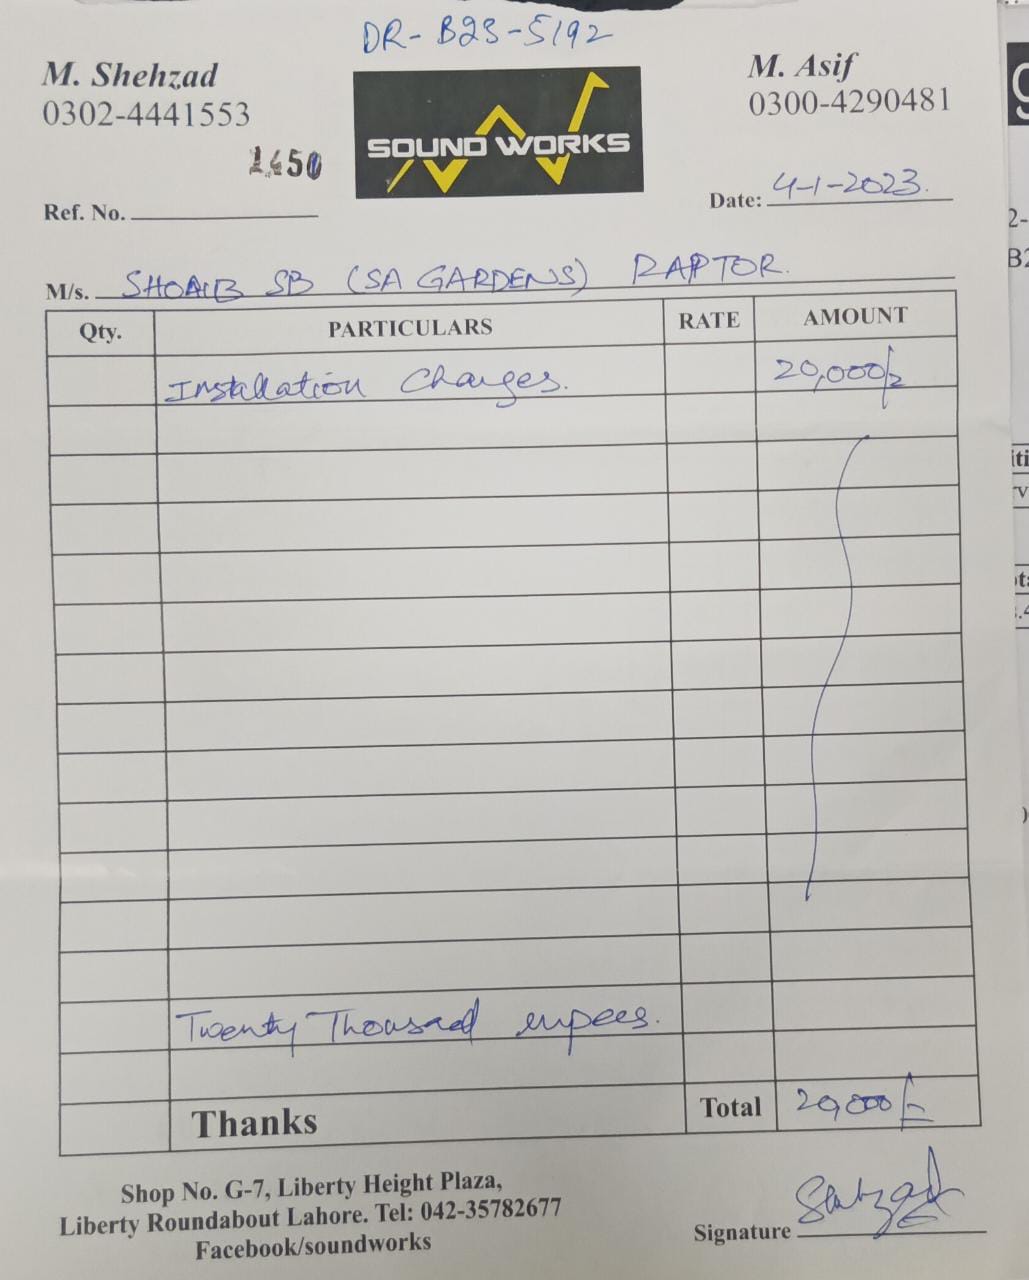 DR-B23-5192
M. Shehzad
0302-4441553
SOUND WORKS
M. Asif
0300-4290481
1450
Ref. No.
Date: 4-1-2023.
M/s. SHOAIB SB (SA GARDENS) RAPTOR.
Qty. PARTICULARS RATE AMOUNT
Installation Charges. 20,000/-
Twenty Thousand rupees.
Thanks Total 20,000/-
Shop No. G-7, Liberty Height Plaza,
Liberty Roundabout Lahore. Tel: 042-35782677
Facebook/soundworks
Signature Shahzad